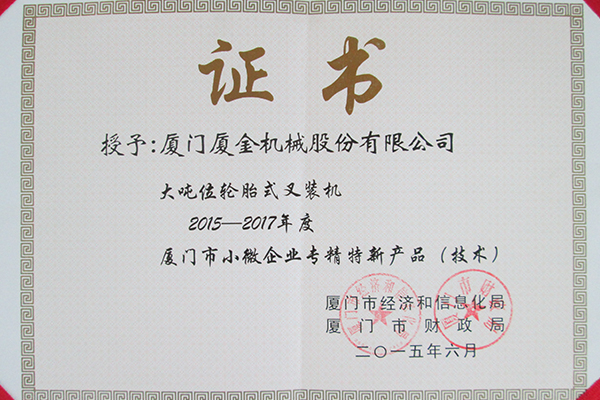 证书
授予：厦门厦金机械股份有限公司
大吨位轮胎式叉装机
2015—2017年度
厦门市小微企业专精特新产品（技术）
厦门市经济和信息化局
厦门市财政局
二〇一五年六月